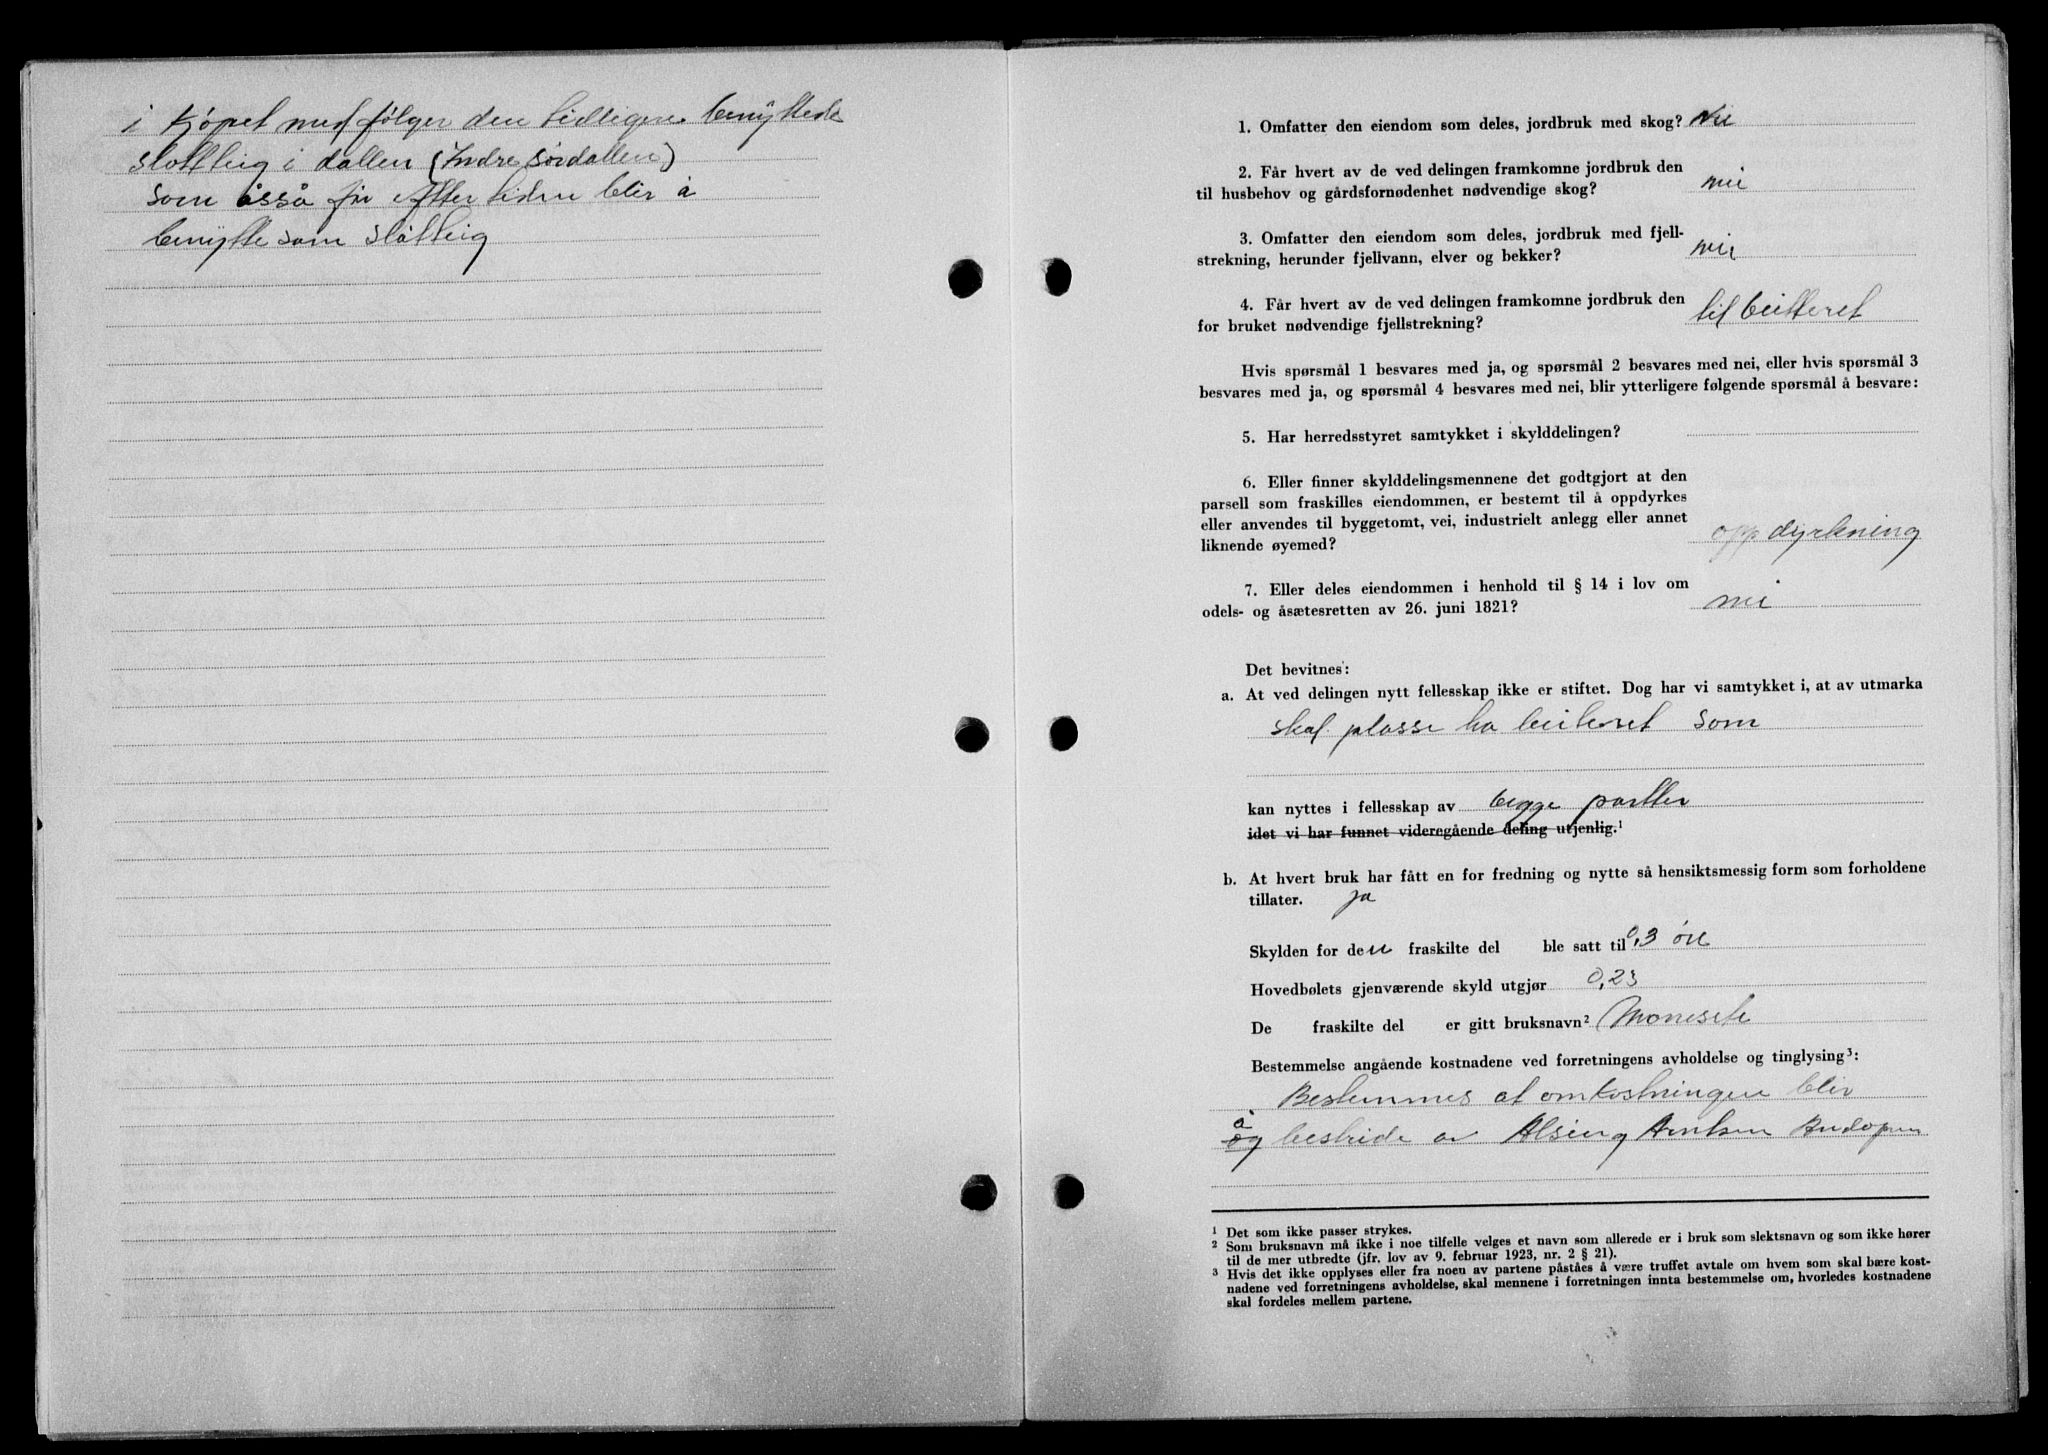 i Kjøpet medfølger den tidligere benyttede
slåtteig i dallen (Indre Sördallen)
som åsså för Efter tiden blir å
benytte som slåtteig
1. Omfatter den eiendom som deles, jordbruk med skog? Nei
2. Får hvert av de ved delingen framkomne jordbruk den
til husbehov og gårdsfornødenhet nødvendige skog? nei
3. Omfatter den eiendom som deles, jordbruk med fjell-
strekning, herunder fjellvann, elver og bekker? nei
4. Får hvert av de ved delingen framkomne jordbruk den
for bruket nødvendige fjellstrekning? til beitteret
Hvis spørsmål 1 besvares med ja, og spørsmål 2 besvares med nei, eller hvis spørsmål 3
besvares med ja, og spørsmål 4 besvares med nei, blir ytterligere følgende spørsmål å besvare:
5. Har herredsstyret samtykket i skylddelingen?
6. Eller finner skylddelingsmennene det godtgjort at den
parsell som fraskilles eiendommen, er bestemt til å oppdyrkes
eller anvendes til byggetomt, vei, industrielt anlegg eller annet
liknende øyemed? oppdyrkning
7. Eller deles eiendommen i henhold til § 14 i lov om
odels- og åsætesretten av 26. juni 1821? nei
Det bevitnes:
a. At ved delingen nytt fellesskap ikke er stiftet. Dog har vi samtykket i, at av utmarka
skal plasse ha beiteret som
kan nyttes i fellesskap av begge partter
idet vi har funnet videregående deling utjenlig.¹
b. At hvert bruk har fått en for fredning og nytte så hensiktsmessig form som forholdene
tillater. ja
Skylden for den fraskilte del ble satt til 0,3 öre
Hovedbølets gjenværende skyld utgjør 0,23
De fraskilte del er gitt bruksnavn² Monesete
Bestemmelse angående kostnadene ved forretningens avholdelse og tinglysing³:
Bestemmes at omkostningene blir
å
og bestride av Alsing Arntsen Andopen
¹ Det som ikke passer strykes.
² Som bruksnavn må ikke i noe tilfelle velges et navn som allerede er i bruk som slektsnavn og som ikke hører
til de mer utbredte (jfr. lov av 9. februar 1923, nr. 2 § 21).
³ Hvis det ikke opplyses eller fra noen av partene påståes å være truffet avtale om hvem som skal bære kost-
nadene ved forretningens avholdelse, skal mennene i forretningen innta bestemmelse om, hvorledes kostnadene
skal fordeles mellem partene.